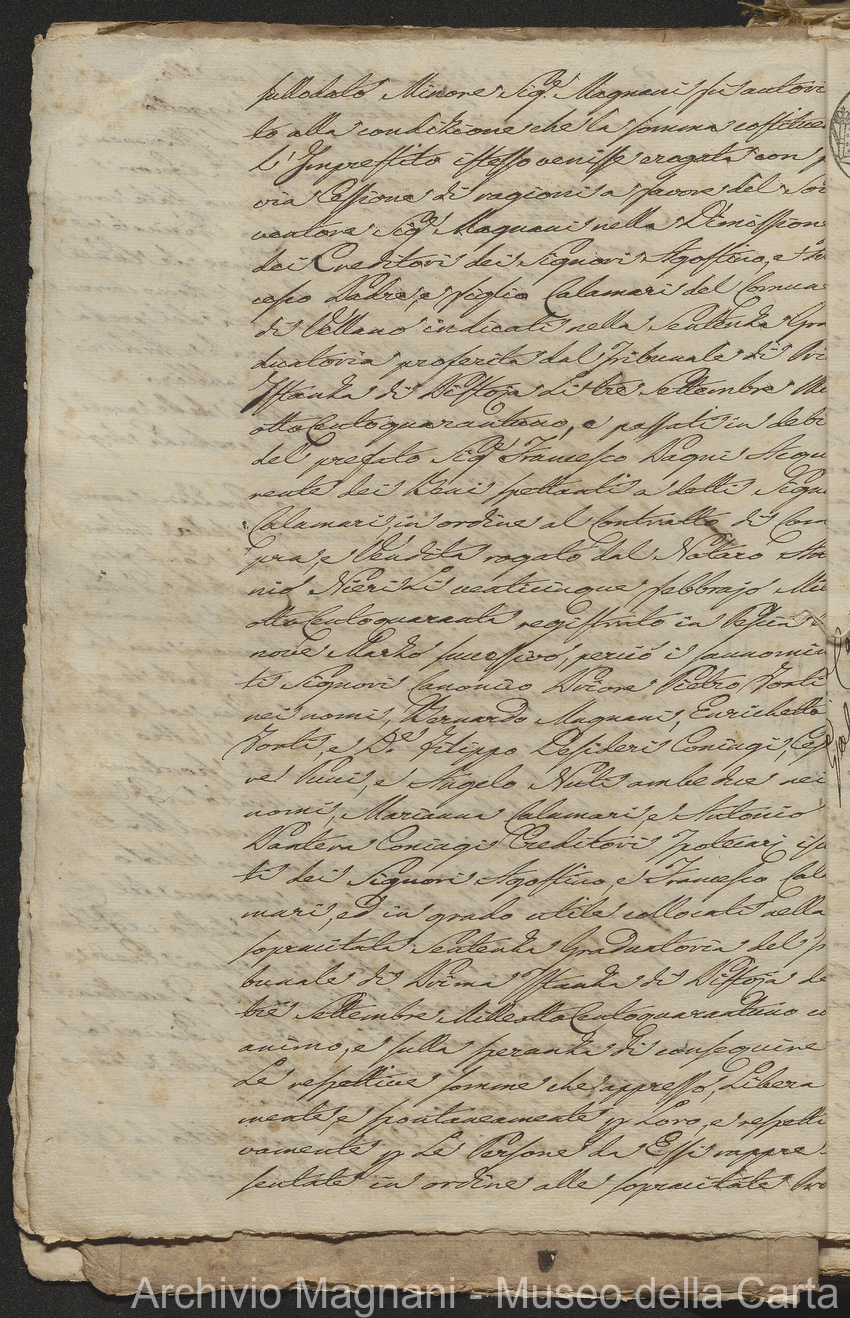 sullodato Minore Sig.e Magnani fu autoriz
to alla condizione che la somma costituen
L'Imprestito istesso venisse erogata con p
via Cessione di ragioni a favore del Sov
ventore Sig.e Magnani nella Dimissione
dei Creditori dei Signori Agostino, e Fran
cesco Padre, e figlio Calamari del Comune
di Vellano indicati nella Sentenza Gra
duatoria proferita dal Tribunale di Pri
Istanza di Pistoja Li tre Settembre Mi
otto Cento quarantuno, e passati in debi
del prefato Sig.e Francesco Pagni Acqui
rente dei Beni spettanti a detti Signo
Calamari in ordine al Contratto di Com
pra, e Vendita rogato dal Notaro Anto
nio Nieri Li venticinque febbrajo Mil
otto Cento quaranta registrato in Pescia
nove Marzo successivo, perciò i prenomina
ti Signori Canonico Priore Pietro Forti
nei nomi, Bernardo Magnani, Enrichetta
Forti, e D.e Filippo Desideri Coniugi, Cesa
re Pucci, e Angelo Nuti ambedue nei
nomi, Marianna Calamari, e Antonio
Pantera Coniugi Creditori Ipotecarj iscri
ti dei Signori Agostino, e Francesco Cala
mari, ed in grado utile collocati nella
sopracitata Sentenza Graduatoria del Tri
bunale di Prima Istanza di Pistoja de
tre Settembre Milleotto Cento quarantuno co
animo, e sulla speranza di conseguire
Le respettive somme che appresso, Libera
mente, e spontaneamente p Loro, e respetti
vamente p Le Persone da Essi rappre
sentate in ordine alle sopracitate Pro
Archivio Magnani - Museo della Carta